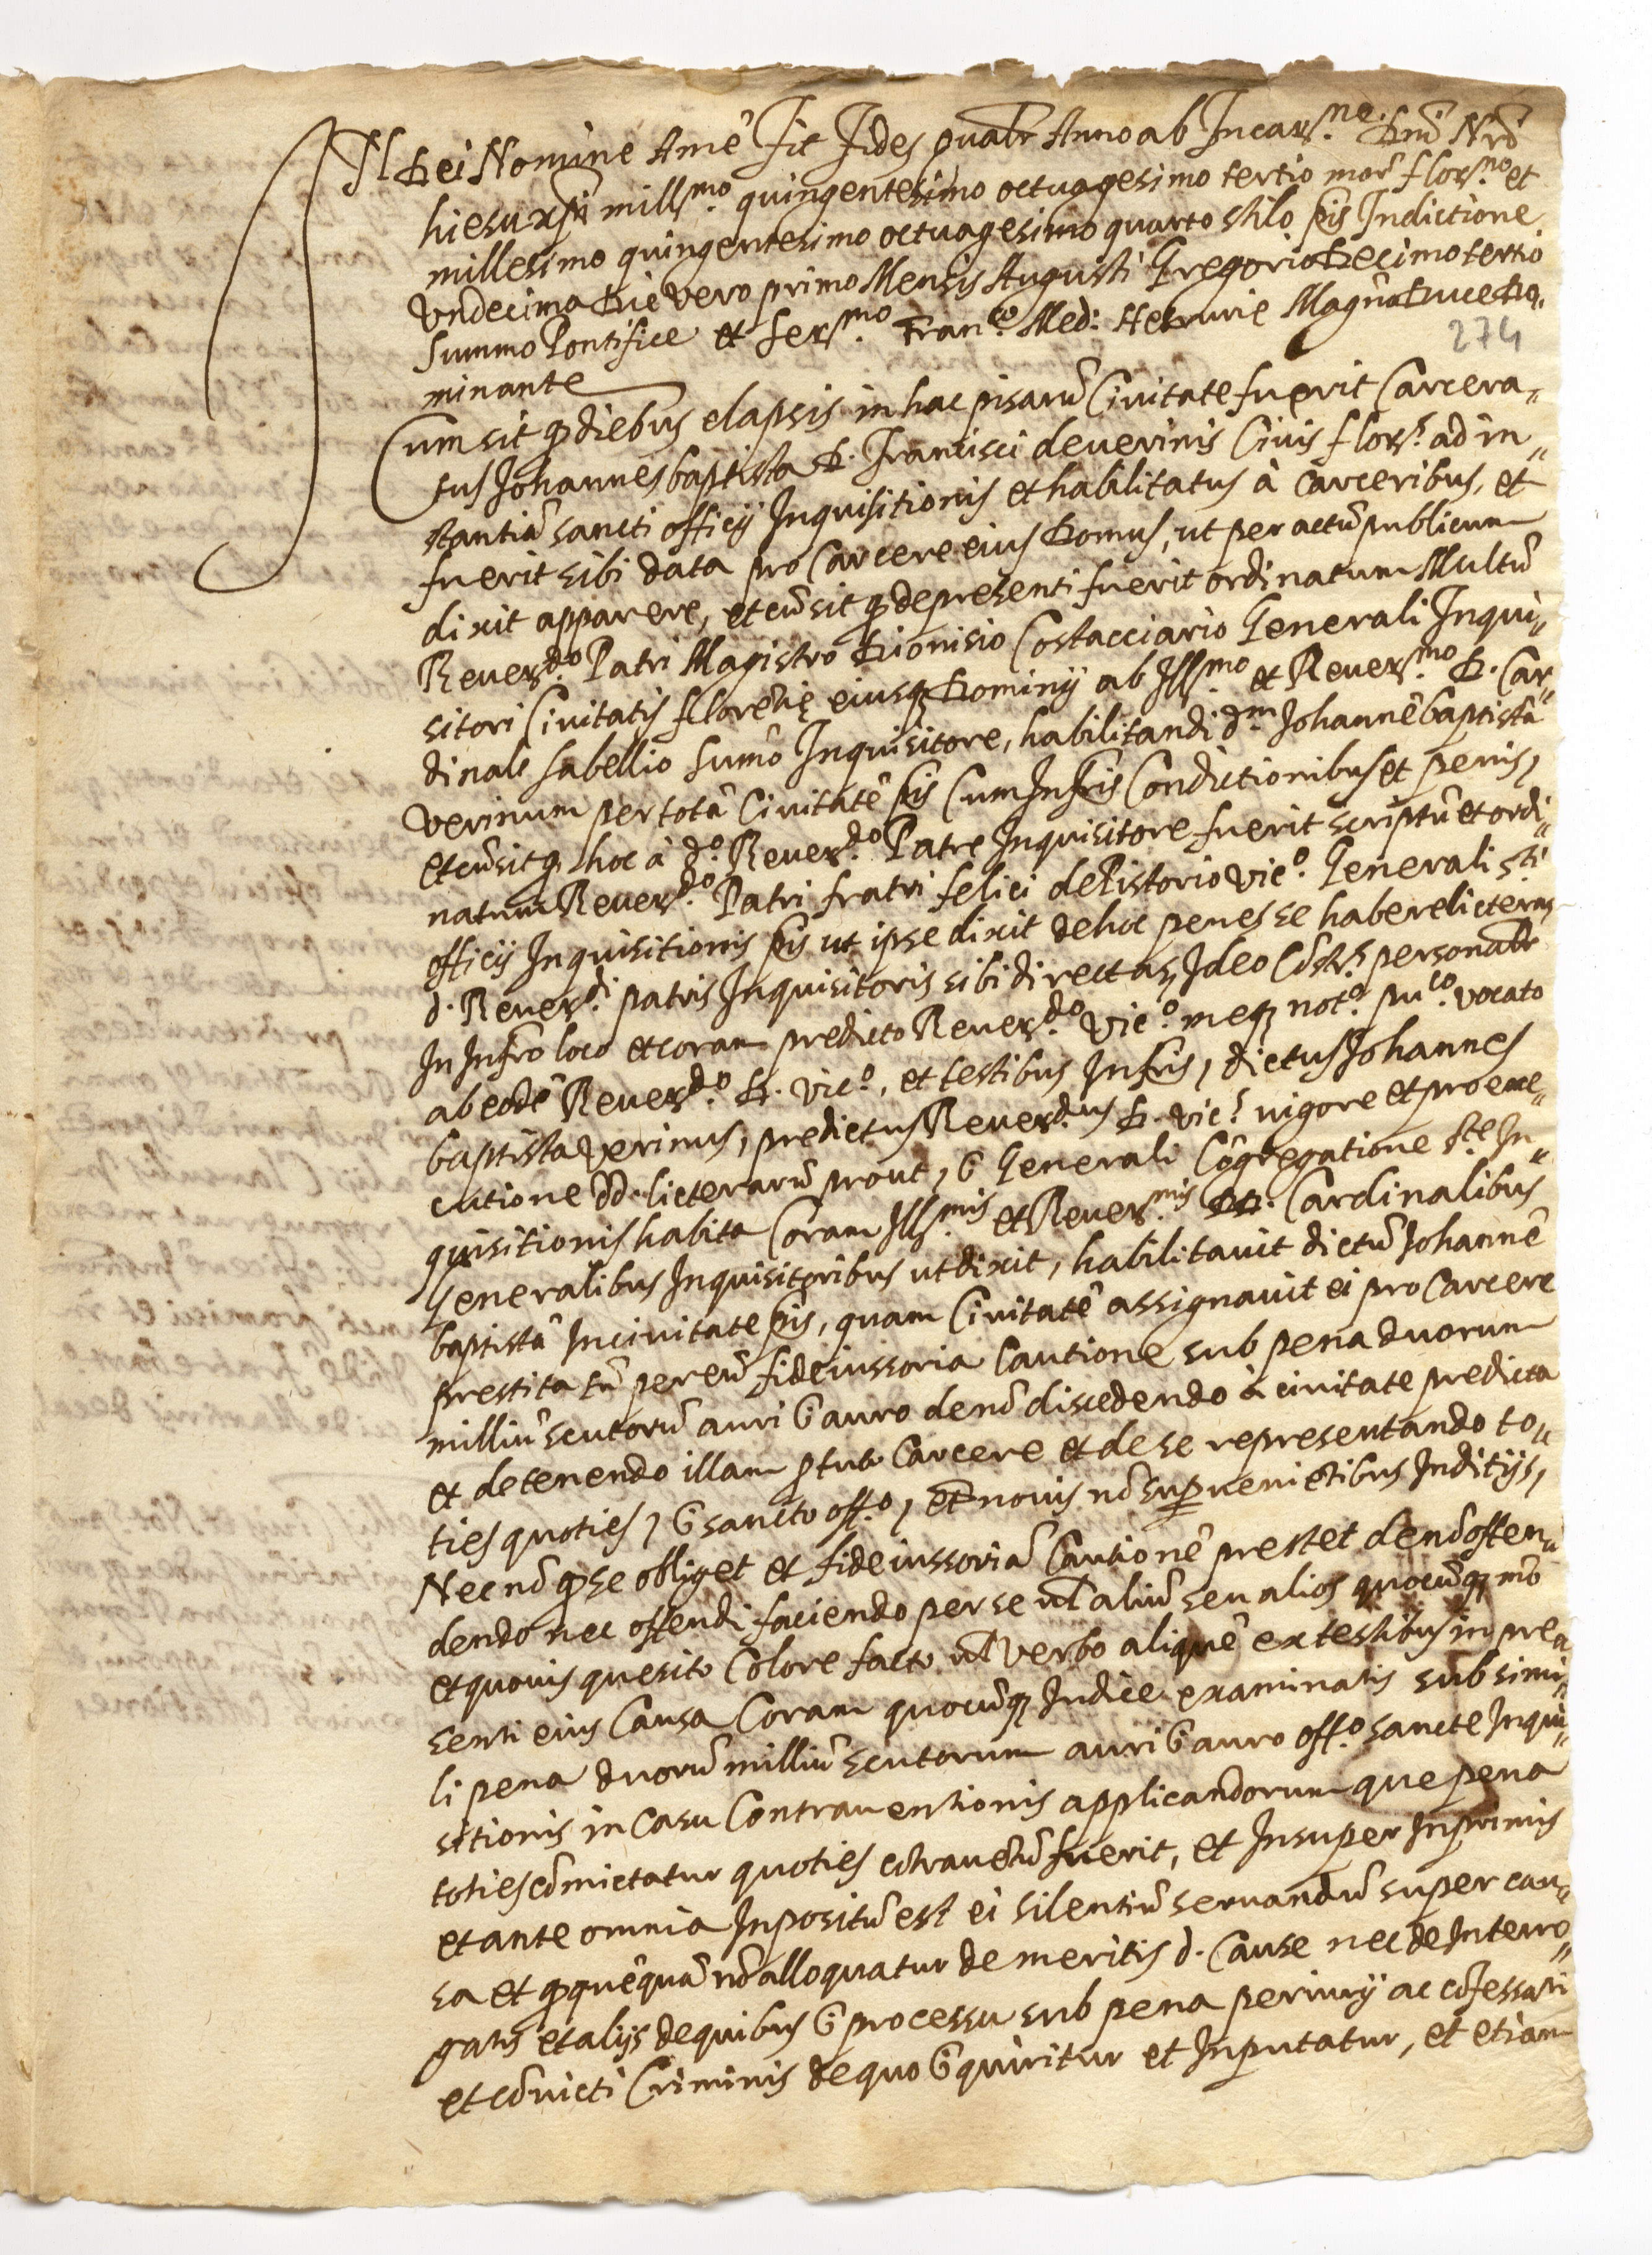 IN Dei Nomine Amē fit fides qualr Anno ab Incarne. Dni Nri
hiesu xpi millmo. quingentesimo octuagesimo tertio more florno. et
millesimo quingentesimo octuagesimo quarto stilo pis Indictione
Undecima Die vero primo Mensis Augusti Gregorio Decimo tertio
summo Pontifice et sermo. Franco. Med: Hetrurie Magno Duce Do„
minante
274
Cum sit q diebus elapsis in hac pisarū Civitate fuerit Carcera„
tus Johannesbaptista D. Francisci de verinis Civis flors. ad in„
stantiā sancti officij Inquisitionis et habilitatus à carceribus, et
fuerit sibi data pro Carcere eius Domus, ut per actū publicum
dixit apparere, et cū sit q de presenti fuerit ordinatum Multū
Reverdo. Patri Magistro Dionisio Costacciario Generali Inqui„
sitori Civitatis florētię eiusq Dominij ab Illmo. et Revermo. D. Car„
dinale sabellio sumō Inquisitore, habilitandi dm. Johannē baptistā
verinum per totā Civitatē pis Cum Infris Conditionibus et penis,
et cū sit q hoc à do. Reverdo. Patre Inquisitore fuerit scriptū et ordi„
natum Reverdo. Patri fratri felici de Pistorio vico. Generali sti
officij Inquisitionis pis ut ipse dixit de hoc penes se habere licteras
d. Reverdi. patris Inquisitoris sibi directas, Ideo Cōstis personalr
In Infro loco et coram predicto Reverdo. vico. meq noto. puco. vocato
ab eodē Reverdo. D. vico., et testibus Infris, dictus Johannes
baptista verinus, predictus Reverdus. D. vics. vigore et pro exe„
cutione dd. licterarū prout, ī Generali Cōgregatione ste In„
quisitionis habita Coram Illmis. et Revermis. DD. Cardinalibus
Generalibus Inquisitoribus ut dixit, habilitavit dictū Johannē
baptistā In civitate pis, quam Civitatē assignavit ei pro Carcere
prestita tn per eū fideiussoria Cautione sub pena duorum
milliū scutorū auri ī auro de nō discedendo à civitate predicta
et de tenendo illam p tuto Carcere et de se representando to„
ties quoties, ī sancto offo., et novis nō supvenietibus Inditijs,
Necnō q se obliget et fideiussoriā Cautionē prestet de nō offen„
dendo nec offendi faciendo per se vl aliū seu alios quocūq mō
et quovis quesito Colore facto vl verbo aliquē ex testibus in pre„
senti eius Causa Coram quocūq Iudice examinatis sub simi„
li pena duorū milliū scutorum auri ī auro offo. sancte Inqui„
sitionis in Casu Contraventionis applicandorum que pena
toties cōmictatur quoties cōtravētū fuerit, et Insuper Inprimis
et ante omnia Inpositū est ei silentiū servandū super cau„
sa et q quēquā nō alloquatur de meritis d. Cause nec de Interro„
gatis et alijs de quibus ī processu sub pena periurij ac cōfessati
et cōvicti Criminis de quo īquiritur et Inputatur, et etiam